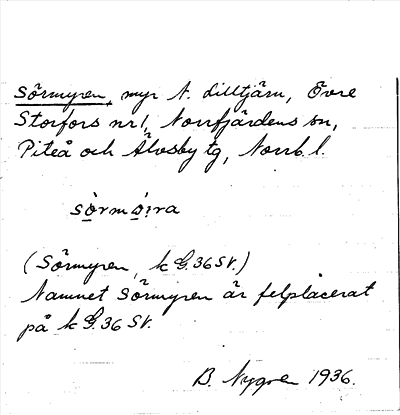 Sörmyren, myr N. Lilltjärn, Övre
Storfors nr 1, Norrfjärdens sn,
Piteå och Älvsby tg, Norrb. l.
sörmöira
(Sörmyren, k G.36 SV.)
Namnet Sörmyren är felplacerat
på k G.36 SV.
B. Nygren 1936.